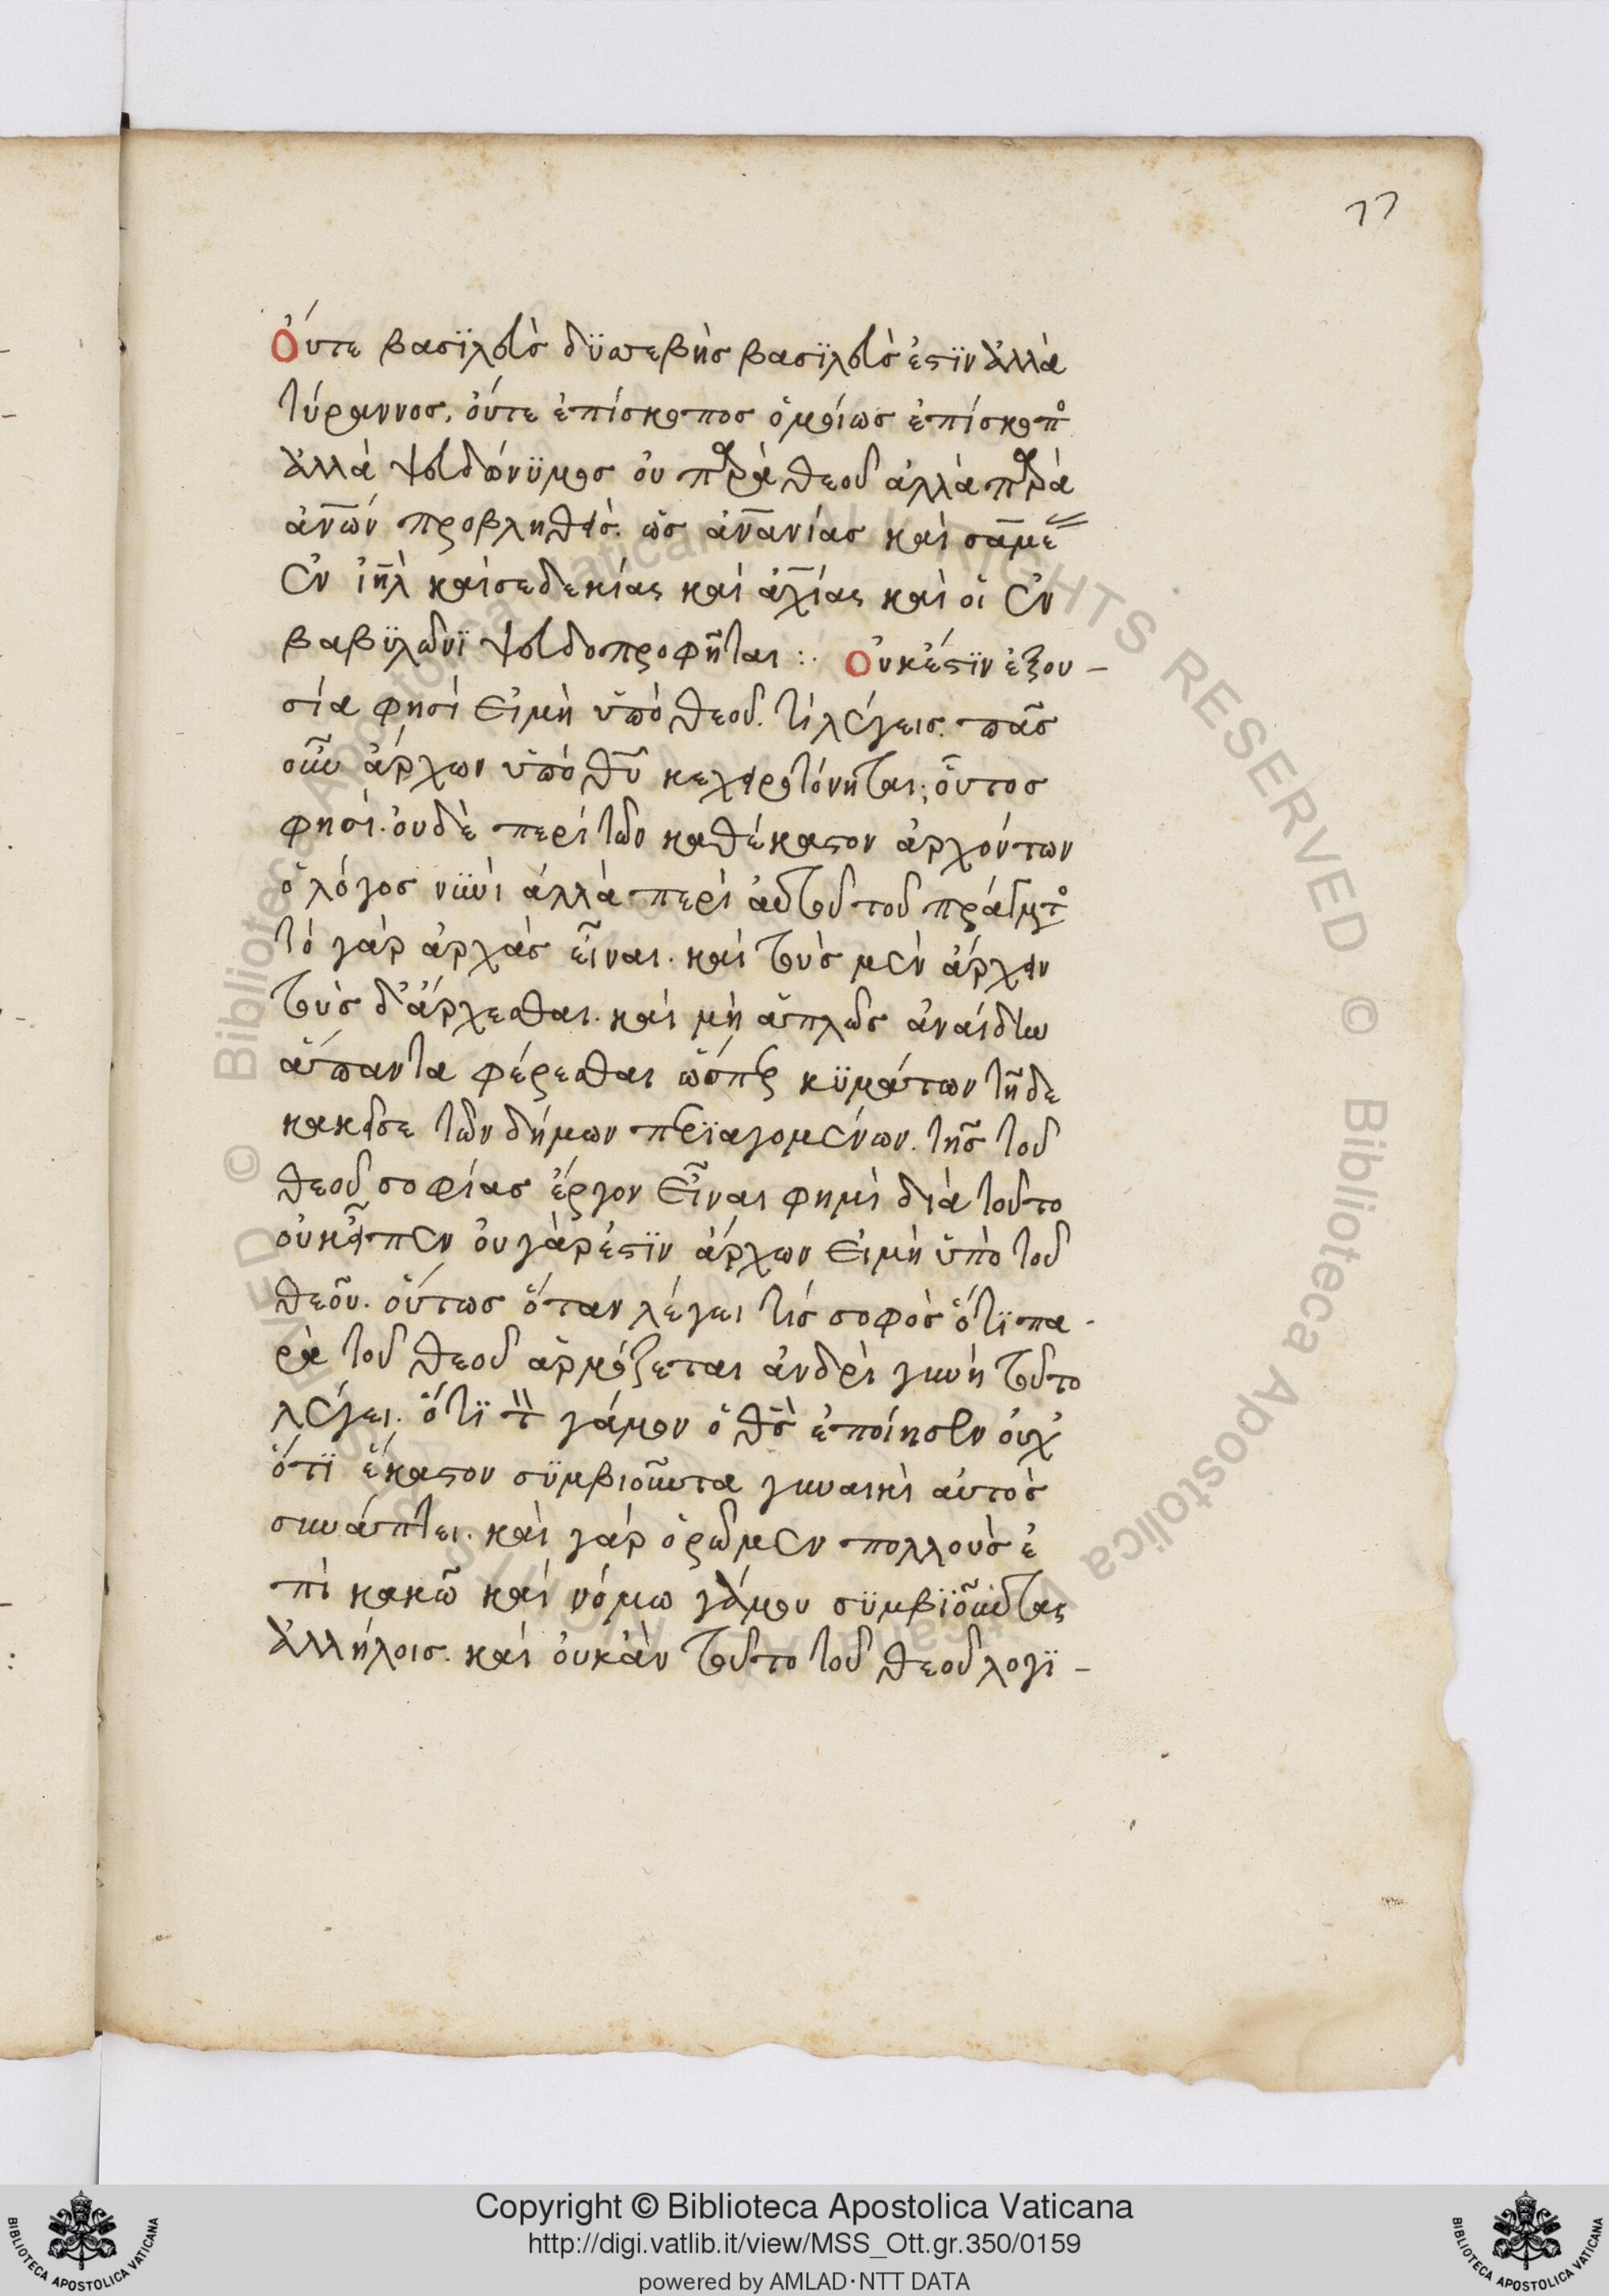 77
Οὔτε βασϊλεὺς δϋσεβὴς βασϊλεὺς ἐστϊν ἀλλὰ
τύραννος. οὔτε ἐπίσκοπος ὁμοίως ἐπίσκοπ(ος)
ἀλλὰ ψευδώνϋμος οὐ παρὰ θεοῦ ἀλλὰ παρὰ
ἀν̅ων προβληθείς. ὡς ἀνανίας καὶ σαμε
ἐν ιη̅λ καὶ σεδεκίας καὶ ἀχίας καὶ οἱ ἐν
βαβϋλῶνϊ ψευδοπροφῆται :. Οὐκ ἔστϊν ἐξου-
σία φησί εἰ μὴ ὑπὸ θεοῦ. τί λέγεις. πᾶς
οὖν ἄρχων ὑπὸ θ̅υ κεχειροτόνηται; οὗτος
φησί. οὐδὲ περὶ τῶν καθέκαστον ἀρχόντων
ὁ λόγος νῦνὶ ἀλλὰ περὶ αὐτοῦ τοῦ πράγματο(ς)
τὸ γὰρ ἀρχὰς εἶναι. καὶ τοὺς μὲν ἄρχειν
τοὺς δ' ἄρχεσθαι. καὶ μὴ ἁπλῶς ἀναίδην
ἅπαντα φέρεσθαι ὥσπερ κϋμάτων τῆδε
κακεῖσε τῶν δήμων περϊαγομένων. τῆς τοῦ
θεοῦ σοφίας ἔργον εἶναι φημὶ διὰ τοῦτο
οὐκ εἶπεν οὐ γὰρ ἐστϊν ἄρχων εἰ μὴ ὑπὸ τοῦ
θεοῦ. οὕτως ὅταν λέγει τίς σοφὸς ὅτϊ πα-
ρὰ τοῦ θεοῦ ἁρμόζεται ἀνδρὶ γυνὴ τοῦτο
λέγει. ὅτϊ τὸν γάμον ὁ θ̅ς ἐποίησεν οὐχ
ὅτϊ ἕκαστον σϋμβιοῦντα γυναικὶ αὐτὸς
συνάπτει. καὶ γὰρ ὁρῶμεν πολλοὺς ἐ
πὶ κακῶ καὶ νόμω γάμου σϋμβϊοῦντας
ἀλλήλοις. καὶ οὐκ ἂν τοῦτο τοῦ θεοῦ λογϊ-
Copyright © Biblioteca Apostolica Vaticana
http://digi.vatlib.it/view/MSS_Ott.gr.350/0159
powered by AMLAD·NTT DATA